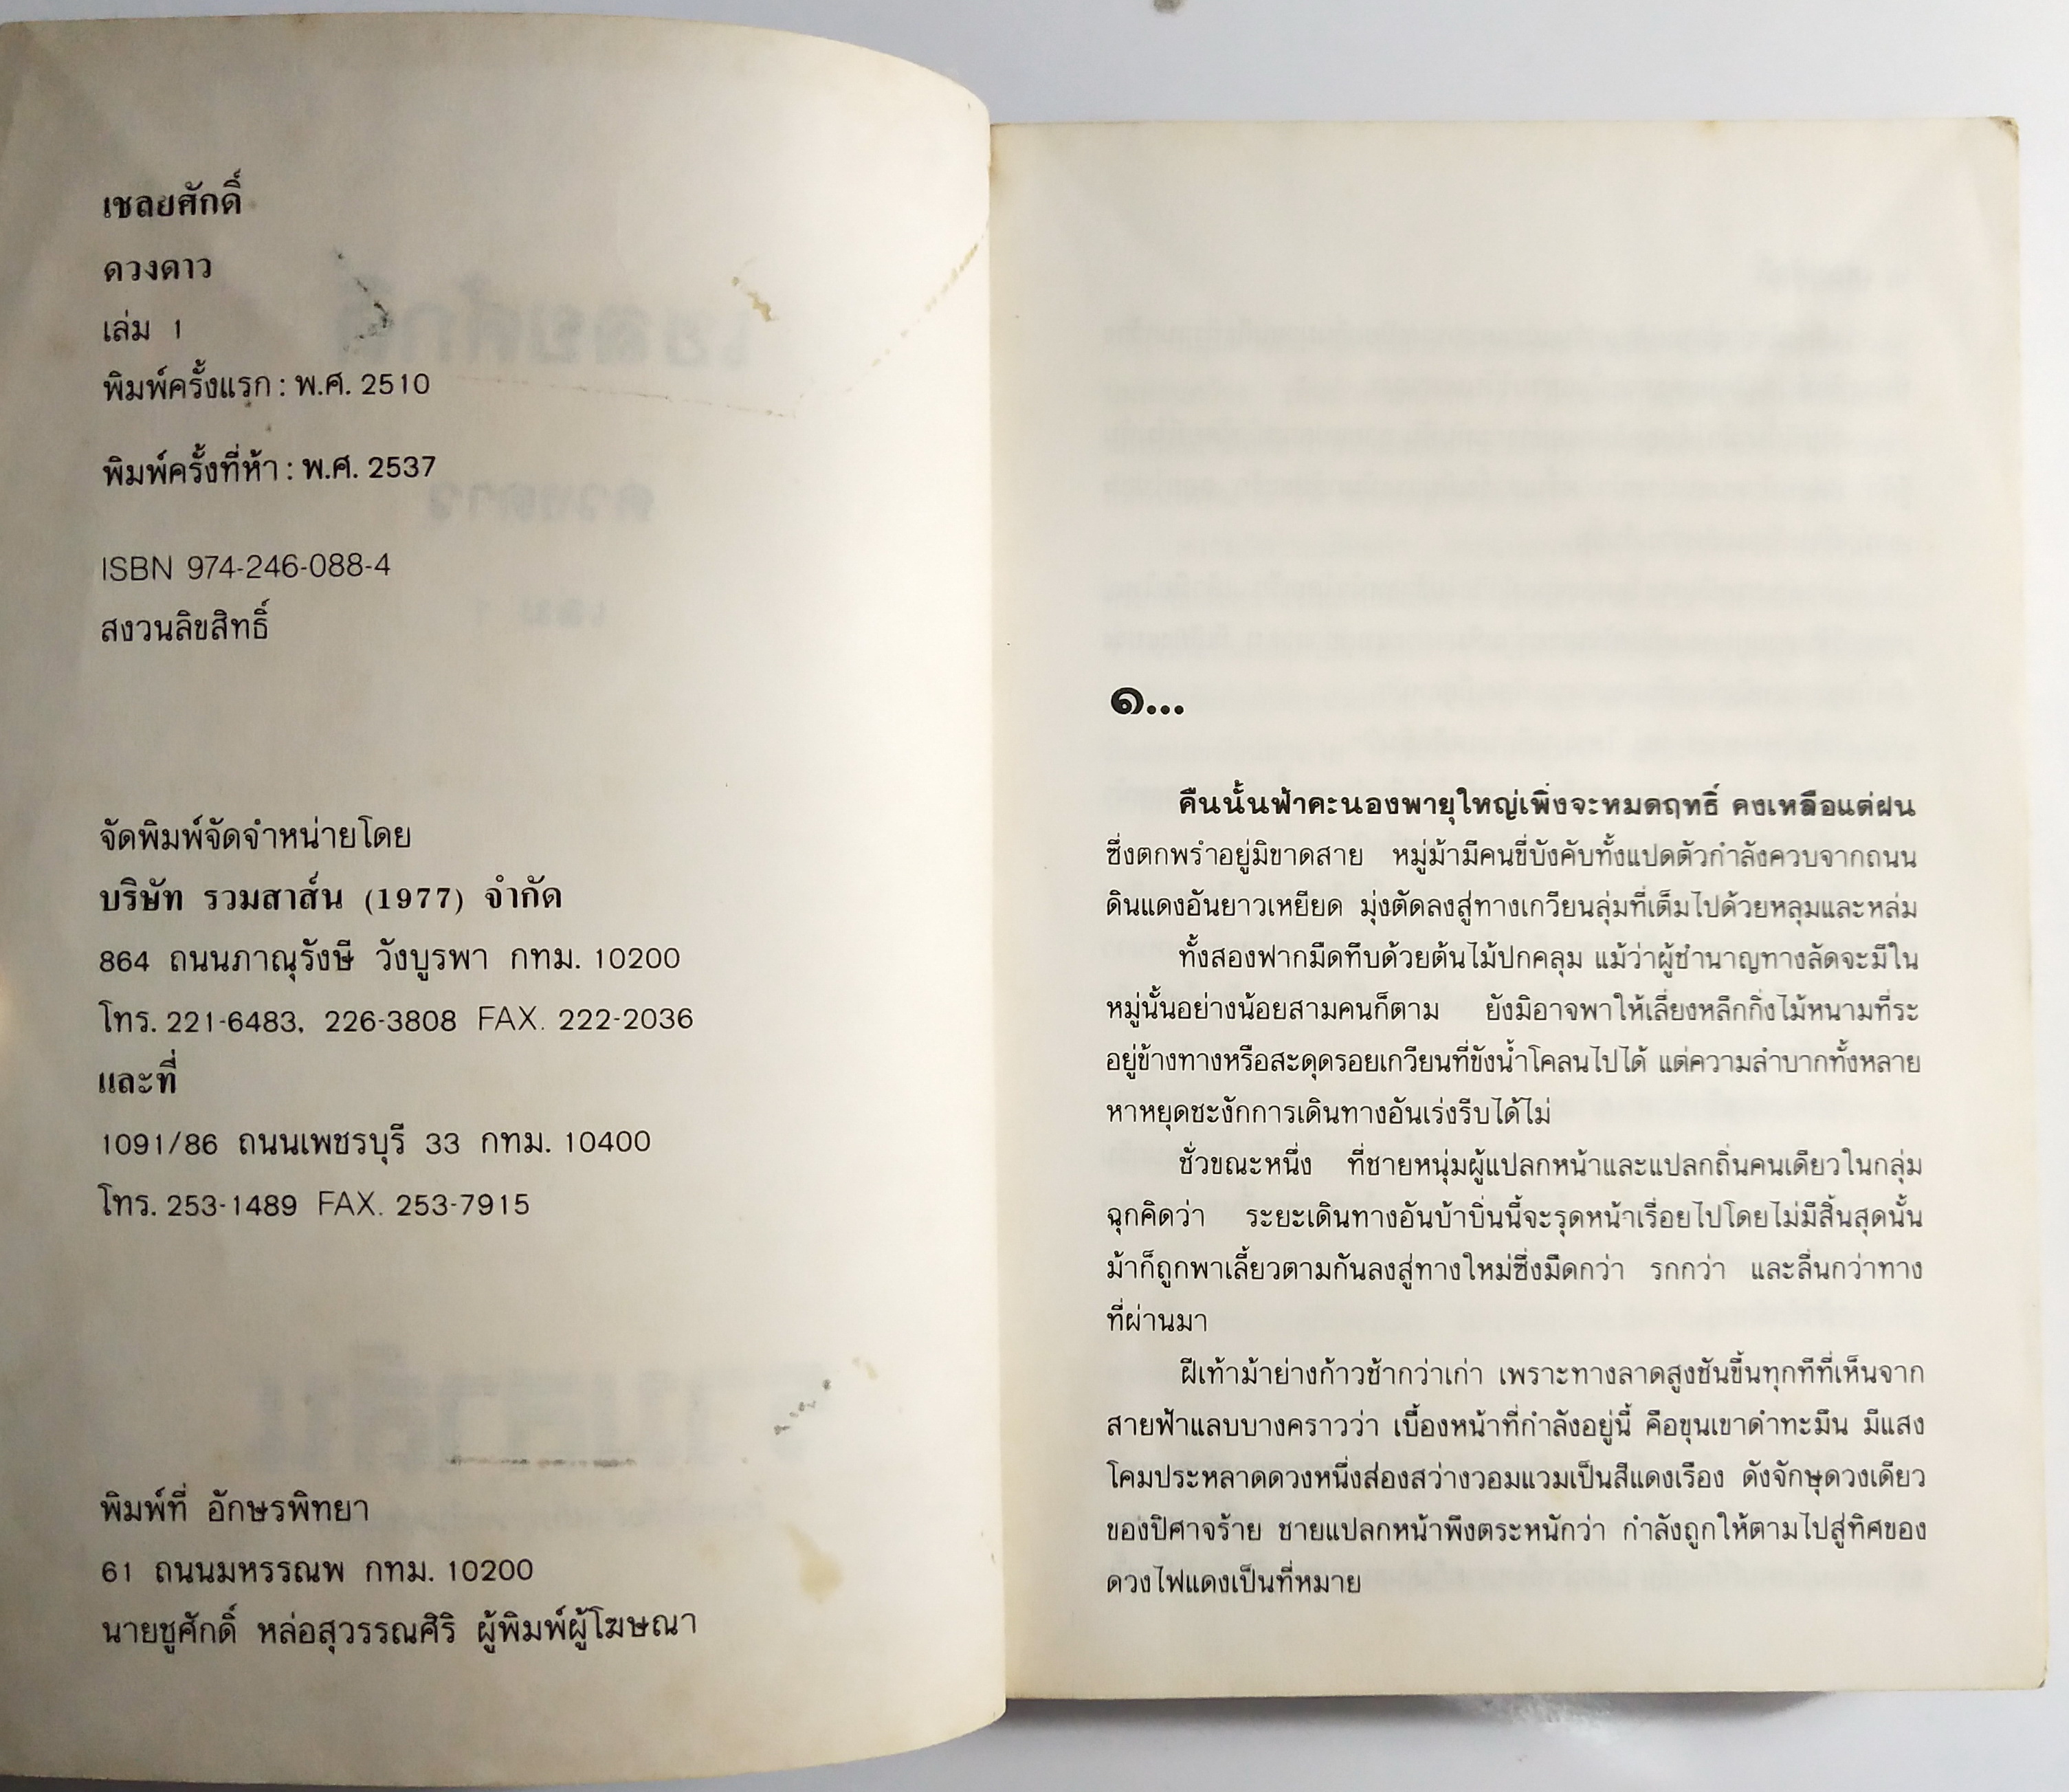 เชลยศักดิ์
ดวงดาว
เล่ม 1
พิมพ์ครั้งแรก : พ.ศ. 2510
พิมพ์ครั้งที่ห้า : พ.ศ. 2537
ISBN 974-246-088-4
สงวนลิขสิทธิ์
จัดพิมพ์จัดจำหน่ายโดย
บริษัท รวมสาส์น (1977) จำกัด
864 ถนนภาณุรังษี วังบูรพา กทม. 10200
โทร. 221-6483, 226-3808 FAX. 222-2036
และที่
1091/86 ถนนเพชรบุรี 33 กทม. 10400
โทร. 253-1489 FAX. 253-7915
พิมพ์ที่ อักษรพิทยา
61 ถนนมหรรณพ กทม. 10200
นายชูศักดิ์ หล่อสุวรรณศิริ ผู้พิมพ์ผู้โฆษณา
๑...
คืนนั้นฟ้าคะนองพายุใหญ่เพิ่งจะหมดฤทธิ์ คงเหลือแต่ฝน
ซึ่งตกพรำอยู่มิขาดสาย หมู่ม้ามีคนขี่บังคับทั้งแปดตัวกำลังควบจากถนน
ดินแดงอันยาวเหยียด มุ่งตัดลงสู่ทางเกวียนลุ่มที่เต็มไปด้วยหลุมและหล่ม
ทั้งสองฟากมืดทึบด้วยต้นไม้ปกคลุม แม้ว่าผู้ชำนาญทางลัดจะมีใน
หมู่นั้นอย่างน้อยสามคนก็ตาม ยังมิอาจพาให้เลี่ยงหลีกกิ่งไม้หนามที่ระ
อยู่ข้างทางหรือสะดุดรอยเกวียนที่ขังน้ำโคลนไปได้ แต่ความลำบากทั้งหลาย
หาหยุดชะงักการเดินทางอันเร่งรีบได้ไม่
ชั่วขณะหนึ่ง ที่ชายหนุ่มผู้แปลกหน้าและแปลกถิ่นคนเดียวในกลุ่ม
ฉุกคิดว่า ระยะเดินทางอันบ้าบิ่นนี้จะรุดหน้าเรื่อยไปโดยไม่มีสิ้นสุดนั้น
ม้าก็ถูกพาเลี้ยวตามกันลงสู่ทางใหม่ซึ่งมืดกว่า รกกว่า และลื่นกว่าทาง
ที่ผ่านมา
ฝีเท้าม้าย่างก้าวช้ากว่าเก่า เพราะทางลาดสูงชันขึ้นทุกทีที่เห็นจาก
สายฟ้าแลบบางคราวว่า เบื้องหน้าที่กำลังอยู่นี้ คือขุนเขาดำทะมึน มีแสง
โคมประหลาดดวงหนึ่งส่องสว่างวอมแวมเป็นสีแดงเรือง ดังจักษุดวงเดียว
ของปิศาจร้าย ชายแปลกหน้าพึงตระหนักว่า กำลังถูกให้ตามไปสู่ทิศของ
ดวงไฟแดงเป็นที่หมาย